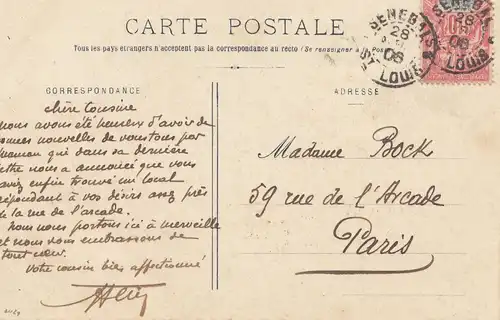 CARTE POSTALE
Tous les pays étrangers n'acceptent pas la correspondance au recto (Se renseigner à la Poste
CORRESPONDANCE
ADRESSE
SENEGAL
28
06
ST LOUIS
10
Chère Cousine
nous avons été heureux d'avoir de
bonnes nouvelles de vous tous par
maman qui dans sa dernière
lettre nous a annoncé que vous
aviez enfin trouvé un local
répondant à vos désirs assez près
de la rue de l'arcade.
Nous nous portons ici à merveille
et nous vous embrassons de
tout cœur.
Votre cousin bien affectionné
Madame Bock
59 rue de l'Arcade
Paris